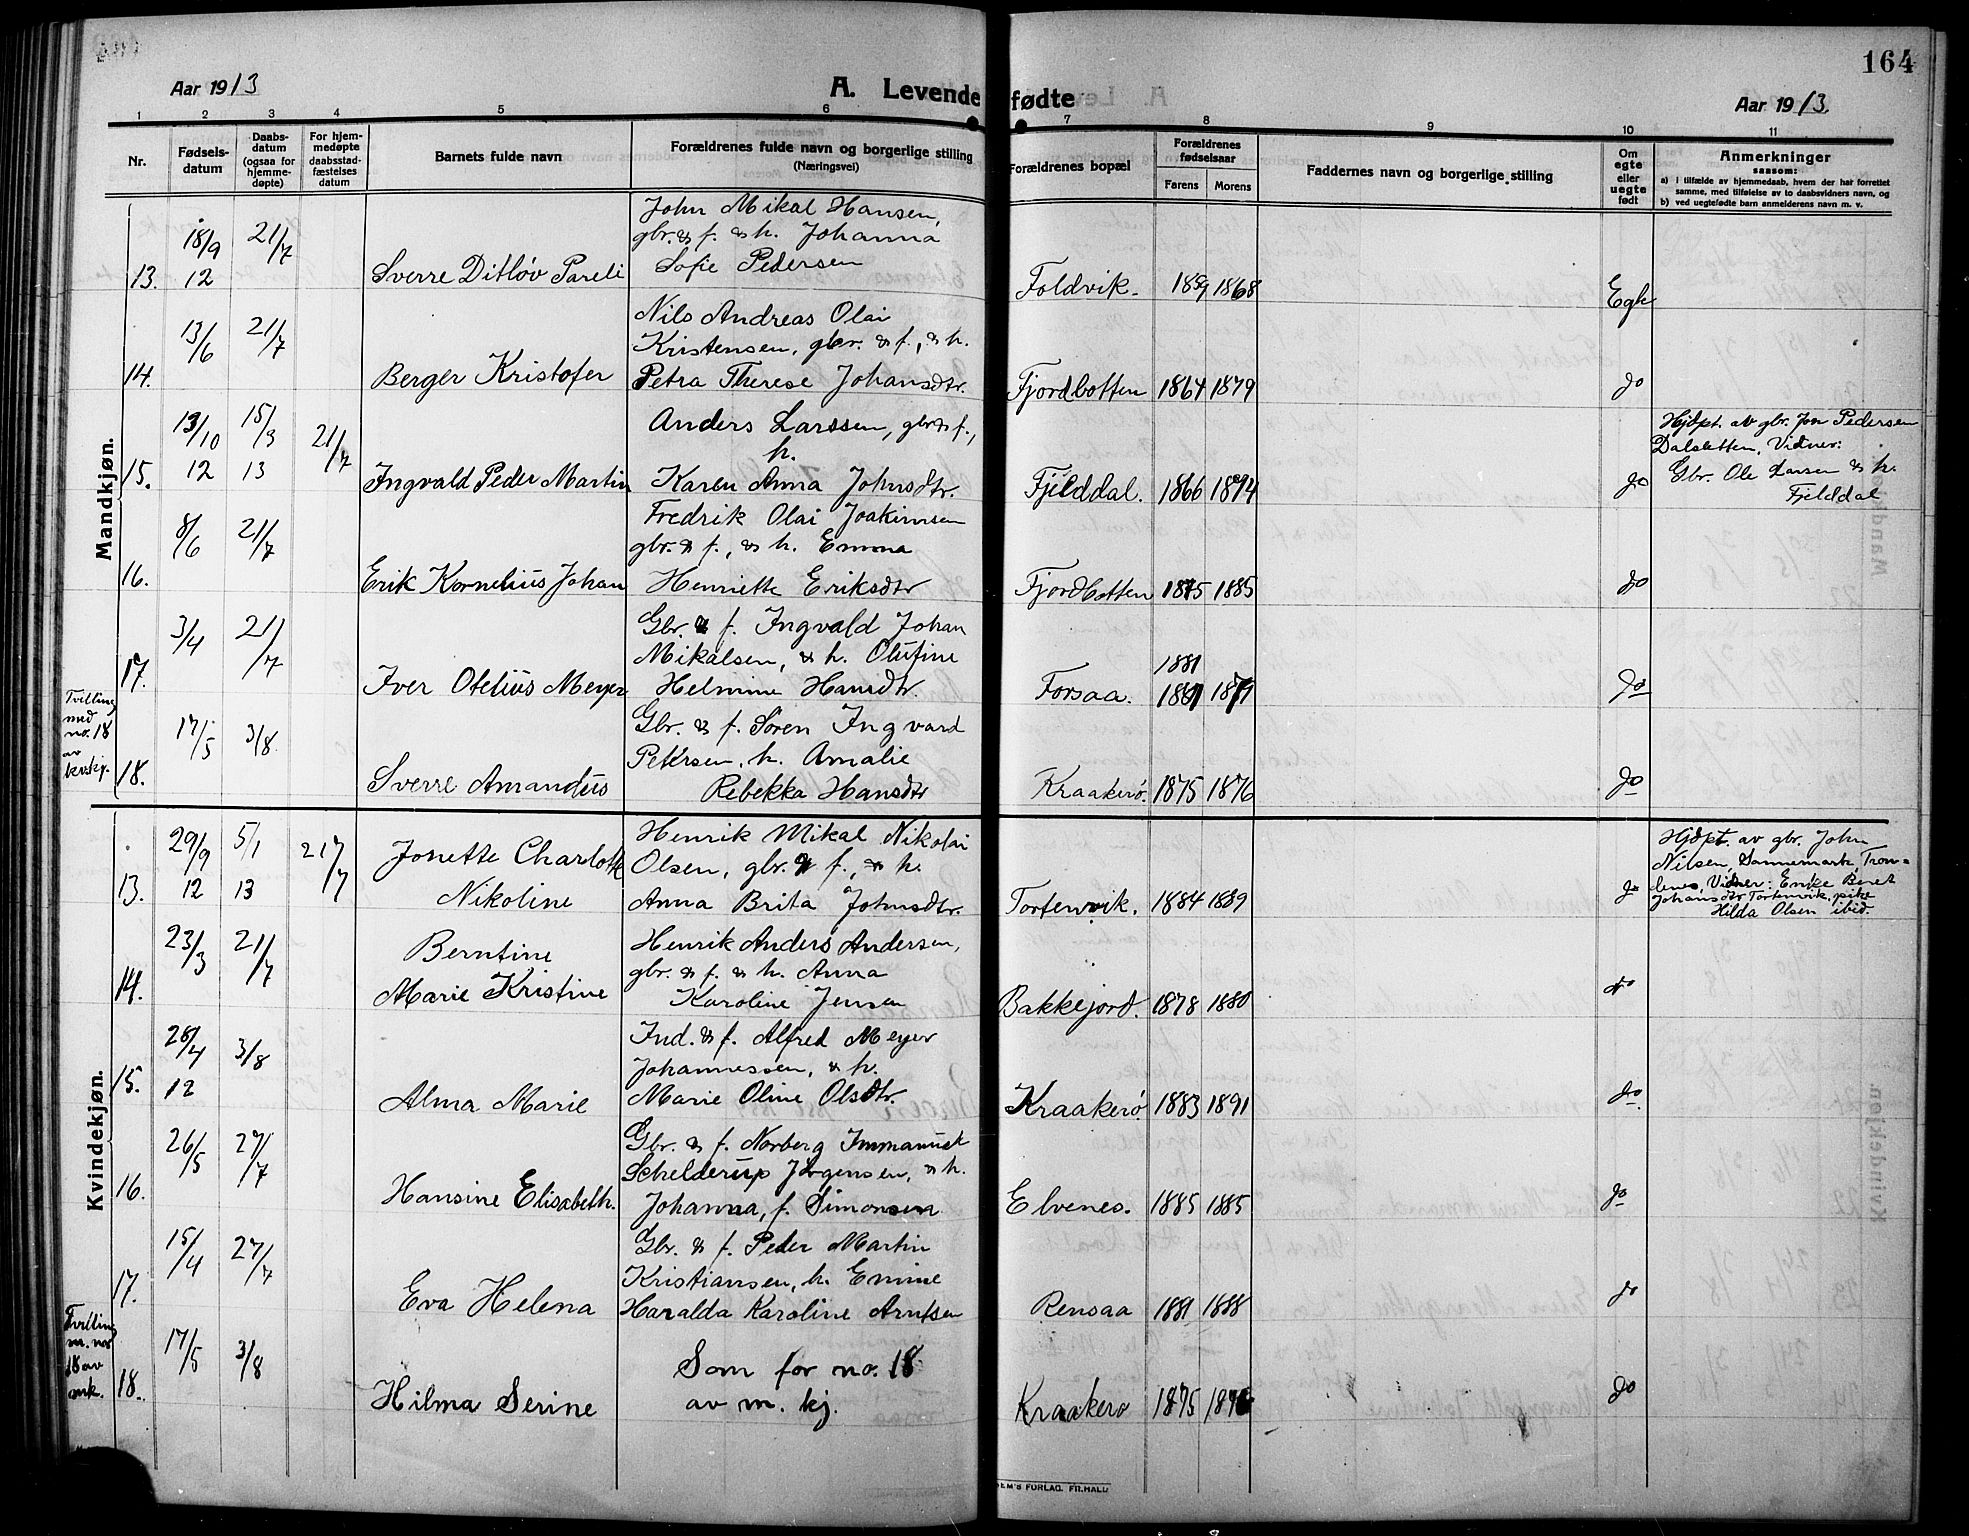 164
Aar 1913
A. Levende fødte
Aar 1913.
1 2 3 4 5 6 7 8 9 10 11
Nr.
Fødsels-
datum
Daabs-
datum
(ogsaa for
hjemme-
døpte)
For hjem-
medøpte
daabsstad-
fæstelses
datum
Barnets fulde navn
Forældrenes fulde navn og borgerlige stilling
(Næringsvei)
Forældrenes bopæl
Forældrenes
fødselsaar
Farens Morens
Faddernes navn og borgerlige stilling
Om
egte
eller
uegte
født
Anmerkninger
saasom:
a) i tilfælde av hjemmedaab, hvem der har forrettet
samme, med tilføielse av to daabsvidners navn, og
b) ved uegtefødte barn anmelderens navn m. v.
Mandkjøn.
John Mikal Hansen,
18/9 21/7 gbr. & f. & h. Johanna
13. 12 Sverre Ditløv Pareli Sofie Pedersen Foldvik. 1859 1868 Egte
Nils Andreas Olai
13/6 21/7 Kristensen, gbr. & f., & h.
14. Berger Kristofer Petra Therese Johansdtr. Fjordbotten 1864 1879 do
13/10 15/3 21/7 Anders Larssen, gbr & f.,
h.
15. 12 13 Ingvald Peder Martin Karen Anna Johnsdtr. Fjelddal. 1866 1874 do
Hjdpt. av gbr. Jon Pedersen
Dalsletten, Vidner:
Gbr. Ole Larsen & h.
Fjelddal
Fredrik Olai Joakimsen
8/6 21/7 gbr. & f., & h. Emma
16. Erik Kornelius Johan Henriette Eriksdtr Fjordbotten 1875 1885 do
3/4 21/7 Gbr. & f. Ingvald Johan
Mikalsen, & h. Olufine 1881
17. Iver Otelius Meyer Helmine Hansdtr. Forsaa. 1881 1879 do
Tvilling
med
no. 18
av
kvkj.
17/5 3/8 Gbr. & f. Søren Ingvard
Petersen, h. Amalie
18. Sverre Amandus Rebekka Hansdtr Kraakerø. 1875 1876 do
Kvindekjøn.
29/9 5/1 21/7 Jonette Charlotte Henrik Mikal Nikolai
Olsen, gbr. & f., & h.
13. 12 13 Nikoline Anna Brita Johnsdtr. Tortenvik. 1884 1889 do
Hjdpt. av gbr. John
Nilsen, Sannemark, Tron=
denes, Vidner: Enke Beret
Johansdtr Tortenvik, pike
Hilda Olsen ibid.
23/3 21/7 Berntine Henrik Anders Andersen,
gbr. & f. & h. Anna
14. Marie Kristine Karoline Jensen Bakkejord. 1878 1880 do
28/4 3/8 Ind. & f. Alfred Meyer
Johannessen, & h.
15. 12 Alma Marie Marie Oline Olsdtr. Kraakerø 1883 1891 do
26/5 27/7 Gbr. & f. Norberg Immanuel
Schelderup Jørgensen, & h.
16. Hansine Elisabeth. Johanna, f. Simonsen Elvenes. 1885 1885 do
15/4 27/7 Gbr. & f. Peder Martin
Kristiansen, h. Emine
17. Eva Helena Haralda Karoline Arntsen Rensaa 1881 1888 do
Tvilling
m. no
18 av
mk.
17/5 3/8 Som for no. 18
18. Hilma Serine av m. kj. Kraakerø 1875 1876 do
EM'S FORLAG, FR.HALD